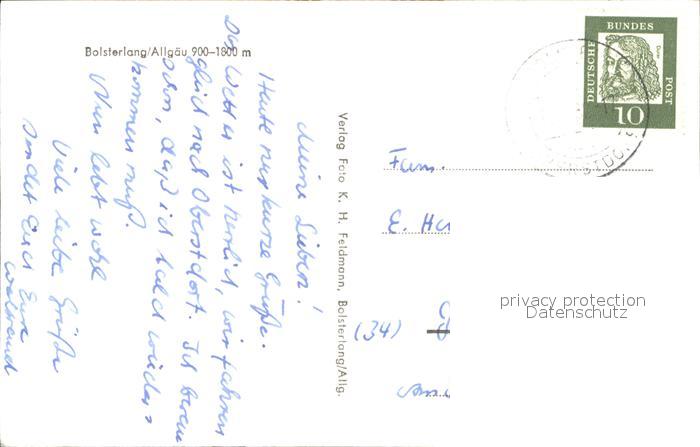 Bolsterlang/Allgäu 900–1800 m
Meine Lieben!
Heute nur kurze Grüße.
Das Wetter ist herrlich, wir fahren
gleich nach Oberstdorf. Ich
schon, daß ich bald wieder
kommen muß.
Nun lebt wohl
Viele liebe Grüße
sendet Euch Eure
Verlag Foto K. H. Feldmann, Bolsterlang/Allg.
DEUTSCHE
BUNDES
POST
Dürer
10
Fam.
E. Ha
(34)
privacy protection
Datenschutz